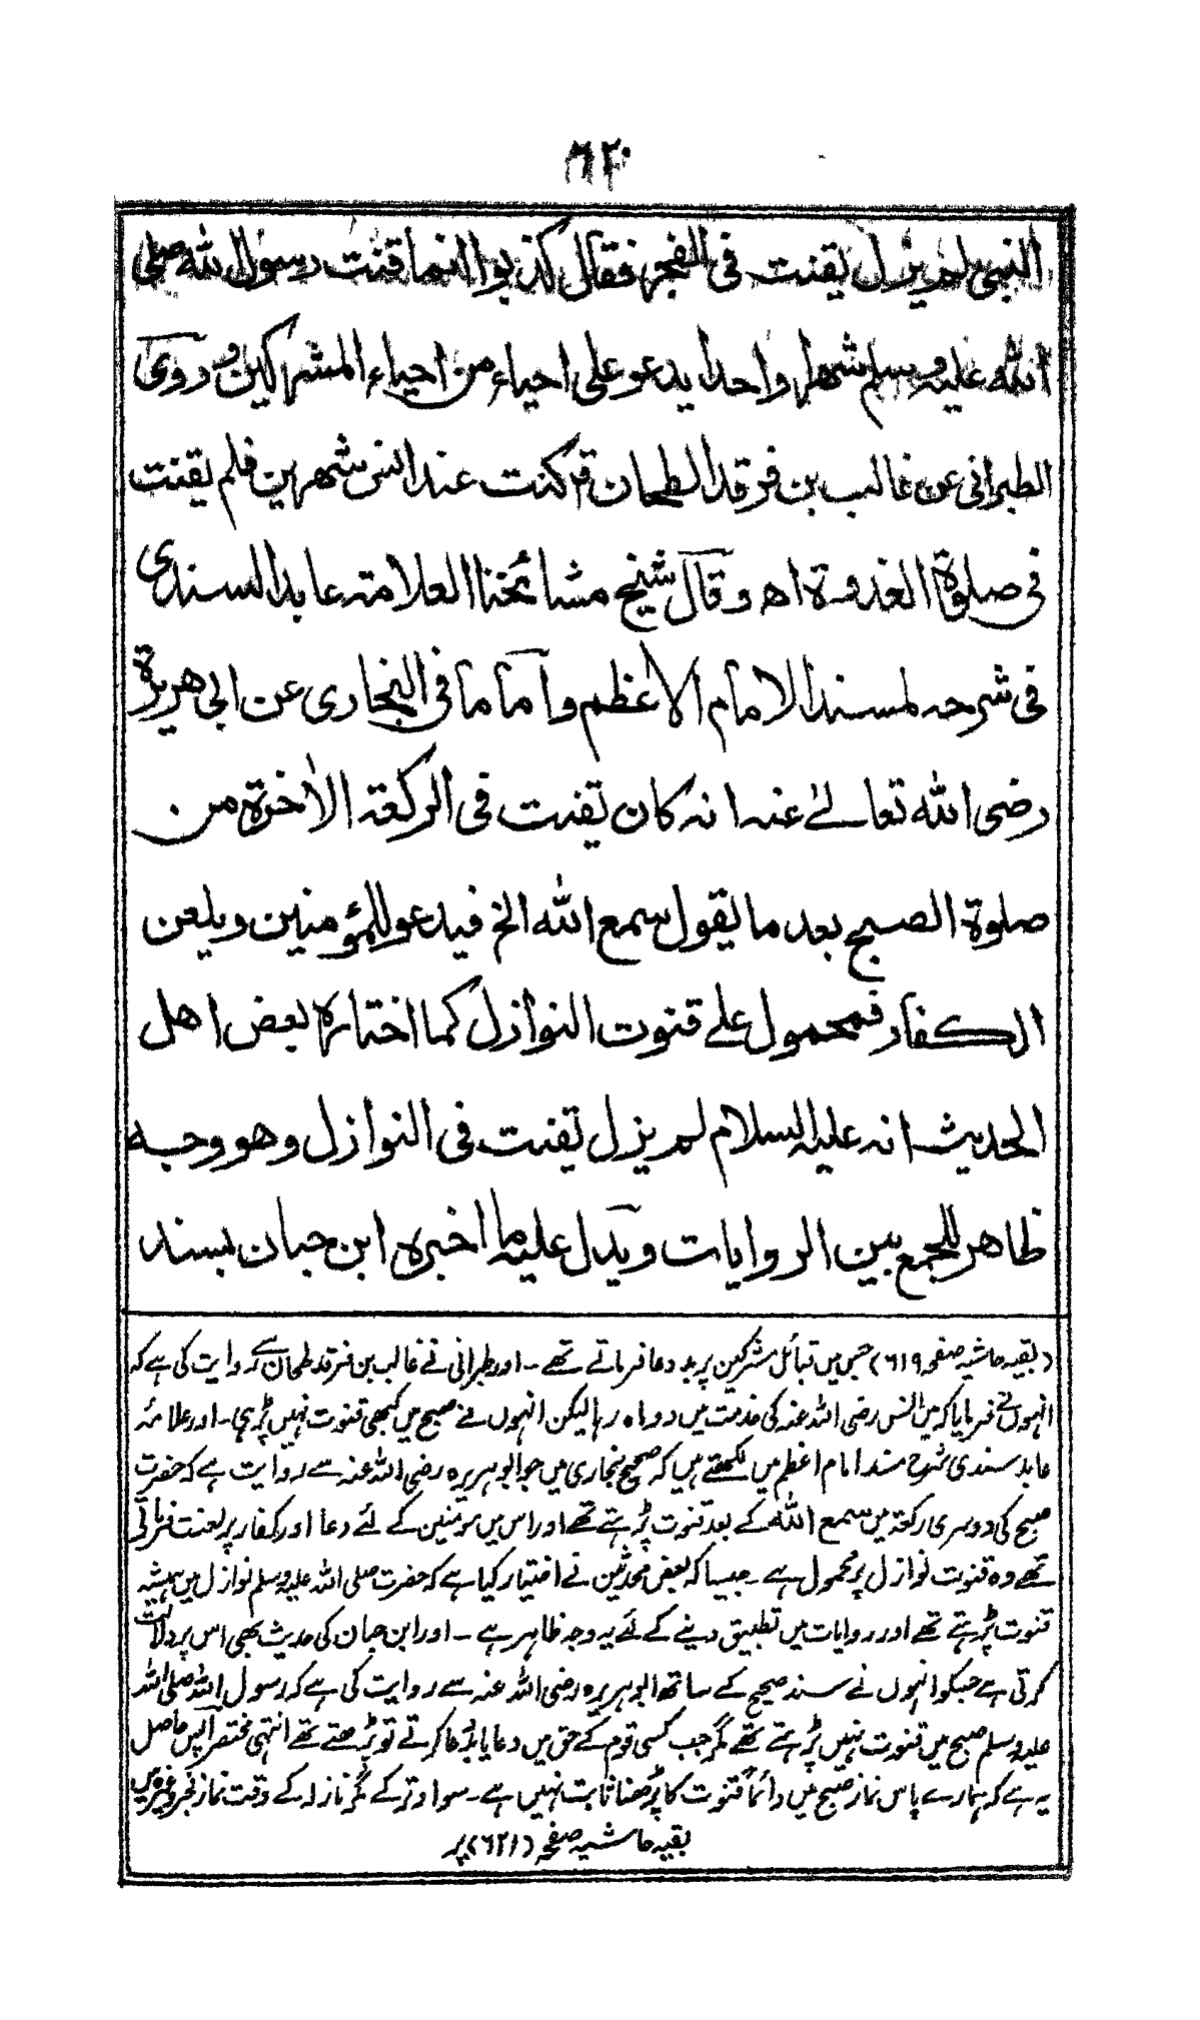 ۶۲۰
النبی لم یزل یقنت فی الفجر فقال کذبوا انما قنت رسول الله صلی
الله علیه وسلم شهرا واحدا یدعو علی احیاء من احیاء المشرکین وروی
الطبرانی عن غالب بن فرقد الطحان قر کنت عند انس شهرین فلم یقنت
فی صلوة الغدوة اھ وقال شیخ مشائخنا العلامة عابد السندی
فی شرحه لمسند الامام الاعظم واما ما فی البخاری عن ابی هریرة
رضی الله تعالیٰ عنه انه کان یقنت فی الرکعة الاخرة من
صلوة الصبح بعد ما یقول سمع الله الخ فیدعو للمؤمنین ویلعن
الکفار فمحمول علی قنوت النوازل کما اختاره بعض اهل
الحدیث انه علیه السلام لم یزل یقنت فی النوازل وهو وجه
ظاهر للجمع بین الروایات ویدل علیه ما اخبره ابن حبان بسند
(بقیہ حاشیہ صفحہ ۶۱۹) جس میں قبائل مشرکین پر بد دعا فرماتے تھے ۔ اور طبرانی نے غالب بن فرقد طحان سے روایت کی ہے کہ
انہوں نے فرمایا کہ میں انس رضی اللہ عنہ کی خدمت میں دو ماہ رہا لیکن انہوں نے صبح میں کبھی قنوت نہیں پڑہی ۔ اور علامہ
عابد سندی شرح مسند امام اعظم میں لکھتے ہیں کہ صحیح بخاری میں جو ابو ہریرہ رضی اللہ عنہ سے روایت ہے کہ حضرت
صبح کی دوسری رکعت میں سمع اللہ کے بعد قنوت پڑہتے تھے اور اس میں مومنین کے لئے دعا اور کفار پر لعنت فرماتے
تھے وہ قنوت نوازل پر محمول ہے ۔ جیسا کہ بعض محدثین نے اختیار کیا ہے کہ حضرت صلی اللہ علیہ وسلم نوازل میں ہمیشہ
قنوت پڑہتے تھے اور روایات میں تطبیق دینے کے لئے یہ وجہ ظاہر ہے ۔ اور ابن حبان کی حدیث بھی اس پر دلالت
کرتی ہے جسکو انہوں نے سند صحیح کے ساتھ ابو ہریرہ رضی اللہ عنہ سے روایت کی ہے کہ رسول اللہ صلی اللہ
علیہ وسلم صبح میں قنوت نہیں پڑہتے تھے مگر جب کسی قوم کے حق میں دعا یا بد دعا کرتے تو پڑھتے تھے انتہی مختصرا پس حاصل
یہ ہے کہ ہمارے پاس نماز صبح میں دائماً قنوت کا پڑھنا ثابت نہیں ہے ۔ سوا وتر کے مگر نازلہ کے وقت نماز فجر وغیرہ میں
بقیہ حاشیہ صفحہ (۶۲۱) پر